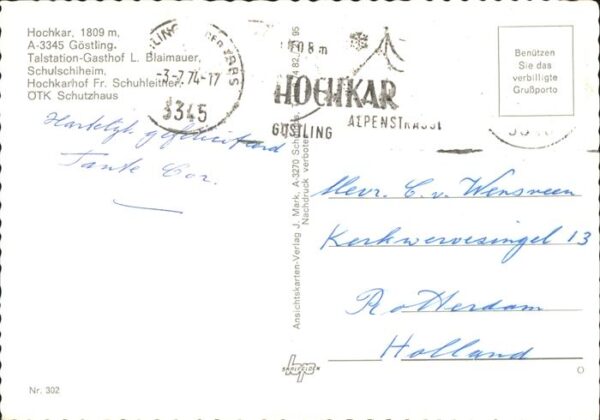 Hochkar, 1809 m,
A-3345 Göstling.
Talstation-Gasthof L. Blaimauer,
Schulschiheim,
Hochkarhof Fr. Schuhleitner,
ÖTK Schutzhaus
-3-7.74-17
3345
HOCHKAR
GÖSTLING ALPENSTRASSE
Benützen
Sie das
verbilligte
Grußporto
Hartelijk gefeliciteerd
Tante Cor.
Ansichtskarten-Verlag J. Mark, A-3270
Nachdruck verboten
Mevr. C. v. Wensveen
Kerkwervesingel 13
Rotterdam
Holland
SAALFELDEN
Nr. 302